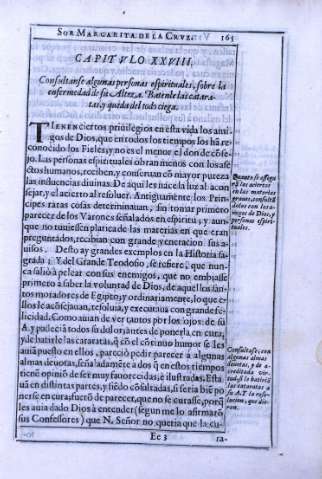 SOR MARGARITA DE LA CRUZ. 165
CAPITULO XXVIII.
Consultanse algunas personas espirituales, sobre la
enfermedad de su Alteza. Batenle las catara-
tas, y queda del todo ciega.
TIENEN ciertos priuilegios en esta vida los ami-
gos de Dios, que en todos los tiempos los hã re-
conocido los Fieles, y no es el menor el don de cõse-
jo. Las personas espirituales obran menos con los afe-
ctos humanos, reciben, y conseruan cõ mayor pureza
las influencias diuinas. De aqui les nace la luz al acon
sejar, y el acierto al resoluer. Antiguamente los Prin-
cipes raras cosas determinauan, sin tomar primero
parecer de los Varones señalados en espiritu; y aun-
que no tuuiessen platica de las materias en que eran
preguntados, recibian con grande veneracion sus a-
uisos. Desto ay grandes exemplos en la Historia sa-
grada: Y del Grande Teodosio, se refiere, que nun-
ca saliò a pelear con sus enemigos, que no embiasse
primero à saber la voluntad de Dios, de aquellos san-
tos moradores de Egipto; y ordinariamente, lo que e-
llos le acõsejauan, resoluia, y executaua con grande fe-
licidad. Como auian de ver tantos por los ojos de su
A. y padeciã todos su dolor; antes de ponerla en cura,
y de batirle las cataratas, q̃ cõ el cõtinuo humor se les
auiã puesto en ellos, pareciò pedir parecer à algunas
almas deuotas, señaladamẽte à dos q̃ en estos tiempos
tienẽ opiniõ de ser muy fauorecidas, è ilustradas. Esta
uã en distintas partes, y siẽdo cõsultadas, si seria biẽ po
nerse en cura, fuerõ de parecer, que no se curasse, porq̃
les auia dado Dios à entender (segun me lo afirmarõ
sus Confessores) que N. Señor no queria que la cu-
Ee 3 ra-
en las materias
graues, consultã
dolas con los a-
migos de Dios, y
personas espiri-
tuales.
Consultase, con
algunas almas
deuotas, y de a-
creditada vir-
tud, si le batiriã
las cataratas a
su A. Y la reso-
lucion, que die-
ron.